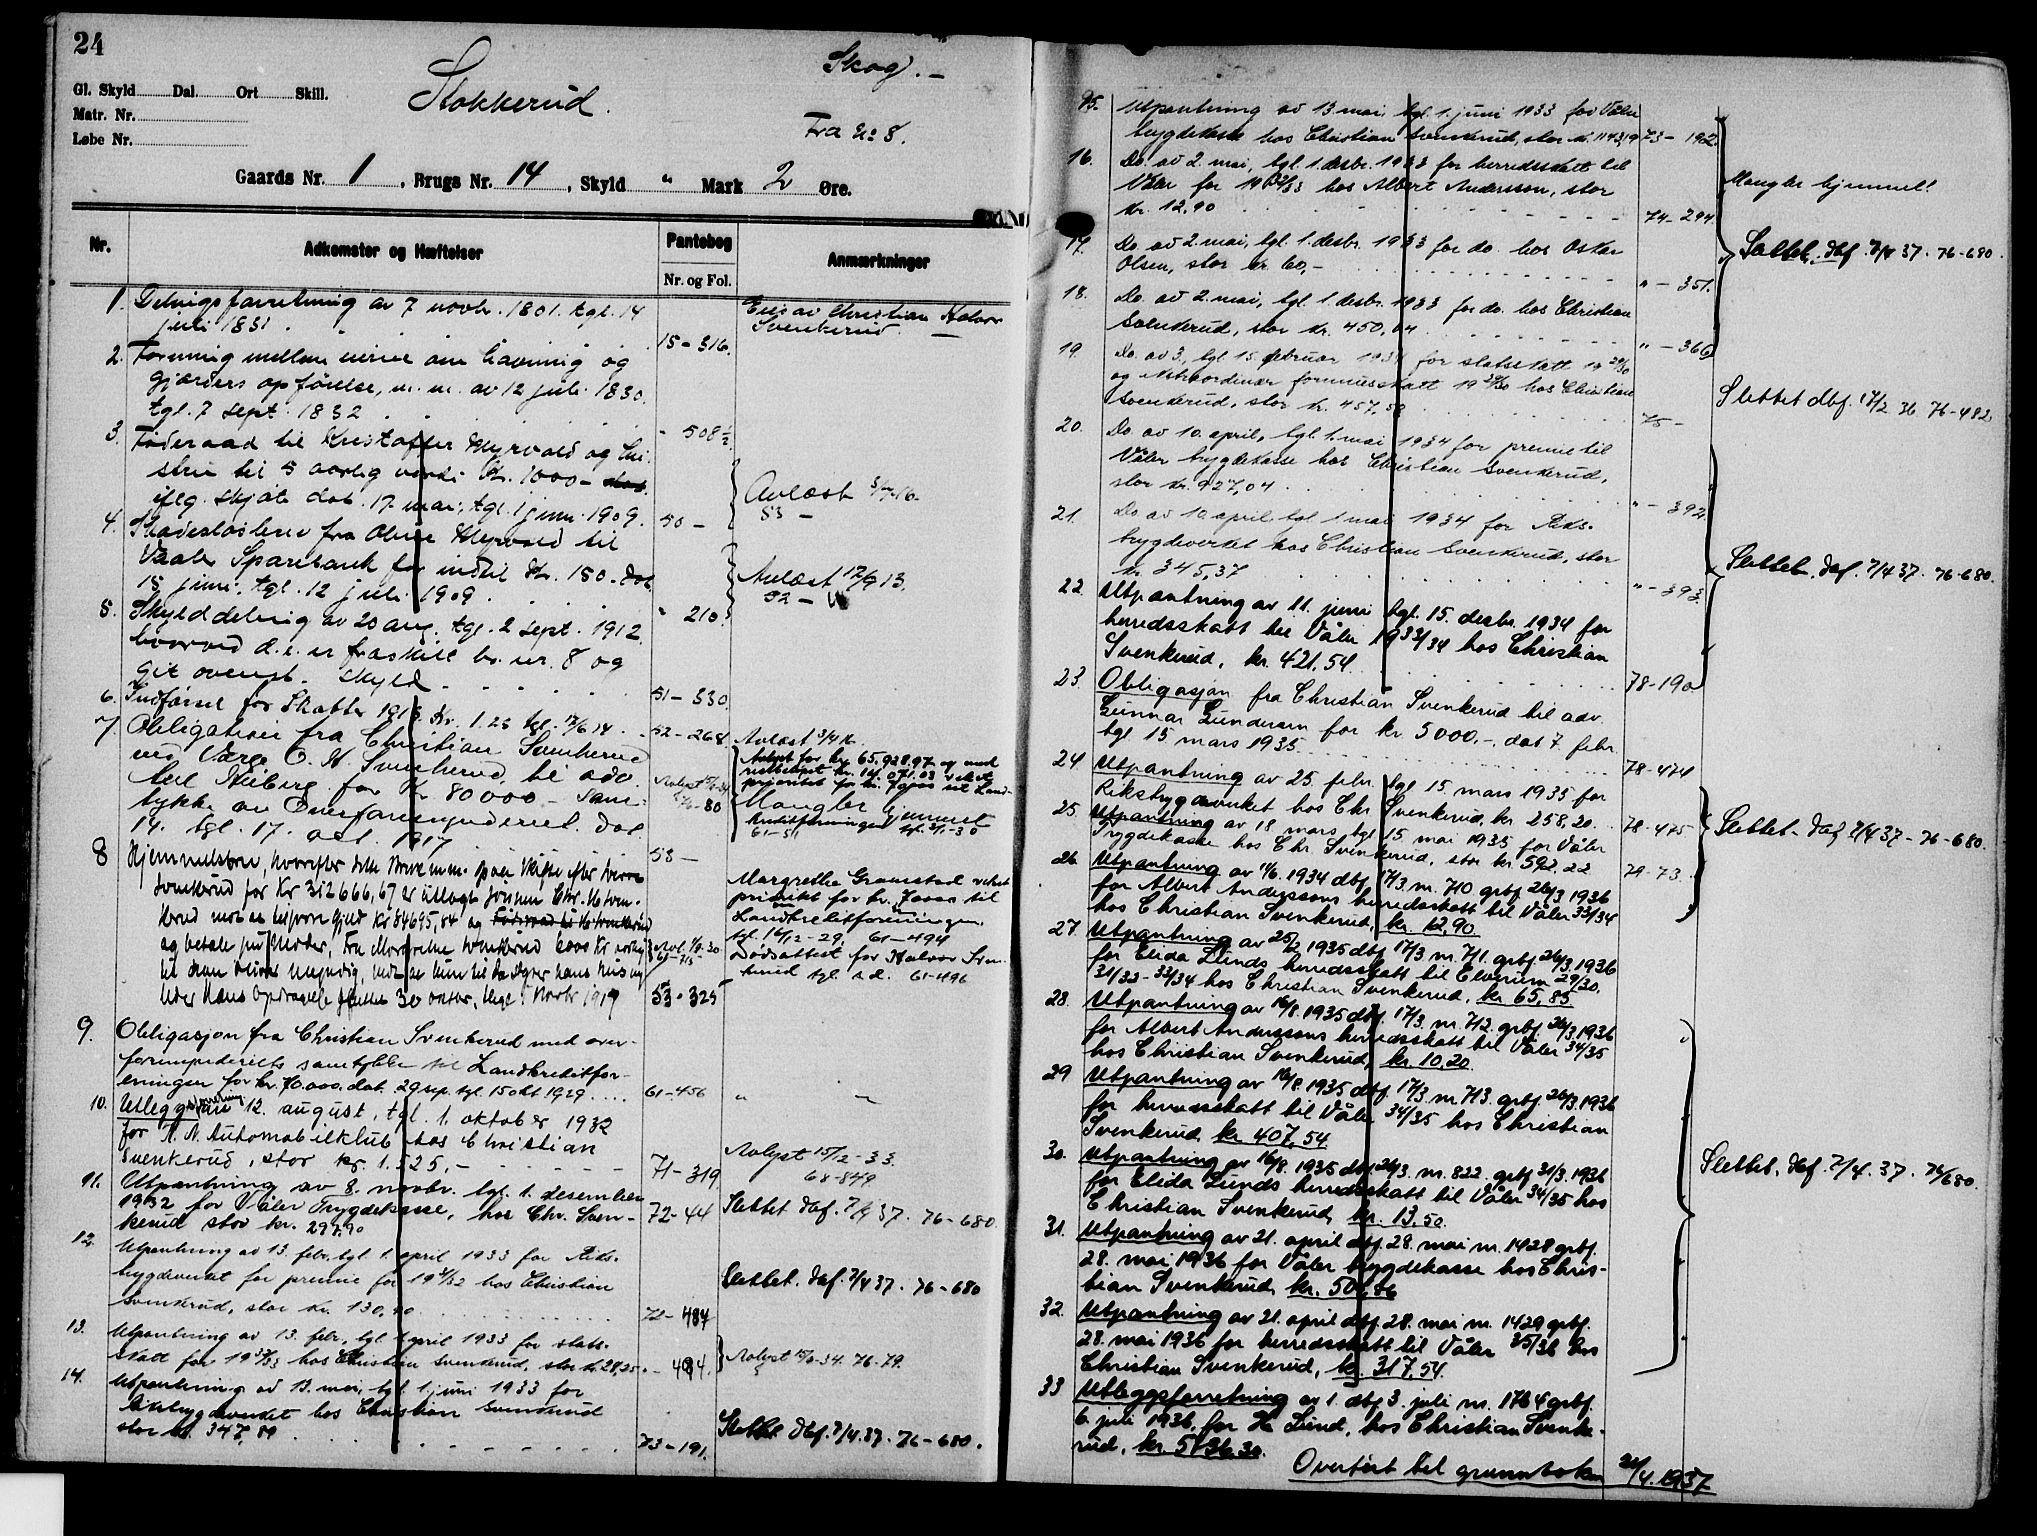 24
Skog. –
Gl. Skyld Dal. Ort Skill.
Stokkerud.
Matr. Nr.
Fra No 8.
Løbe Nr.
Gaards Nr. 1, Brugs Nr. 14, Skyld " Mark 2 Øre.
Nr. Adkomster og Hæftelser Pantebog Anmærkninger
Nr. og Fol.
1. Delingsforretning av 7 novbr. 1801. tgl. 14
juli 1831. 15-316. Eies av Christian Halvor Svenkerud
2. Forening mellem eierne om havning og
gjærders opførelse, m. m. av 12 juli 1830.
tgl. 7 sept. 1832 " 508½
3. Føderaad til Kristoffer Myrvold og
til 5 aarlig værdi Kr. 1000 –
iflg. skjøte dat. 17 mai, tgl. 1 juni 1909. 50 – Avlæst 3/7.16. 53 –
4. Skadesløsbrev fra Oline Myrvold til
Vaaler Sparebank for indtil Kr. 150. Dat.
15 juni, tgl. 12 juli 1909. " 210. Avlæst 12/9 13. 52 –
5. Skylddeling av 20 aug. tgl. 2 sept. 1912
hvorved d. e. er fraskilt br. nr. 8 og
git ovenst. skyld 51-530.
6. Indførsel for Skatter 1913. Kr. 1.25 tgl. 12/6 14. 52-268. Avlæst 3/7 16.
7. Obligation fra Christian Svenkerud
ved Værge O. H. Svenkerud til adv.
for Kr 80000 – Sam-
tykke av Overformynderiet. Dat.
14. tgl. 17. oct. 1917. 53 –
Avlyst for kr. 65.928.97 og med
restbeløpet kr. 14.071.03 veket
prioritet for kr. 70000 til Land-
Kreditforeningen tgl. 3/1-30
Mangler hjemmel
61-51
8 Hjemmelsbrev, hvorefter dette Brnr. m. m. paa Skifte efter
Svenkerud for Kr 312666,67 er utlagt Sønnen Chr. H. Sven-
kerud mot at betale Gjeld Kr 84695,84 og
og betale sin Moder, Fru Margrethe Svenkerud 6000 Kr aarlig
til han bliver myndig, mot at hun til da styrer hans Hus og
leder hans Opdragelse sluttet 30 oktbr, tingl. 1 Novbr 1919 53-325
Margrethe Gramstad veket
prioritet for kr. 70000 til
Landkreditforeningen
tgl. 16/12-29. 61-494
Dødsattest for Halvor Sven-
kerud tgl. s.d. 61-496
9. Obligasjon fra Christian Svenkerud med over-
formynderiets samtykke til Landkreditfor-
eningen for kr. 70.000. dat. 29 sep. tgl. 15 okt 1929 61-456 " –
10. Utleggsforretning 12. august, tgl. 1. oktober 1932
for N. N. Automobilklub hos Christian
Svenkerud, stor kr. 1.525,- 71-319 Avlyst 15/2-33. 68-849
11. Utpantning av 8. novbr. tgl. 1. desember
1932 for Våler Trygdekasse, hos Chr. Sven-
kerud stor kr. 297,90 72-44 Slettet dbf. 7/4 37. 76-680.
12. Utpantning av 13. febr. tgl. 1. april 1933 for Riks-
trygdeverket for premie for 1931/32 hos Christian
Svenkerud, stor kr. 130,40 72-484 Slettet. dbf. 7/4 37. 76-680
13. Utpantning av 13. febr., tgl. 1 april 1933 for stats-
skatt for 1932/33 hos Christian Svenkerud, stor kr. 28,25. " 484. Avlyst 15/6-34. 76-79.
14. Utpantning av 13. mai, tgl. 1. juni 1933 for
Rikstrygdeverket hos Christian Svenkerud
stor kr. 347,89 73-191. Slettet dbf. 7/4 37. 76-680.
15. Utpantning av 13. mai, tgl. 1. juni 1933 for Våler
trygdekasse hos Christian Svenkerud, stor kr. 1143,19 73-192.
16. Do. av 2. mai, tgl. 1. desbr. 1933 for herredsskatt til
Våler for 1932/33 hos Albert Andersson, stor
kr. 12,90 74-294 Mangler hjemmel!
17. Do av 2. mai, tgl. 1. desbr. 1933 for do. hos Oskar
Olsen, stor kr. 60,- " – 351. Slettet. dbf. 7/4 37. 76-680.
18. Do. av 2. mai, tgl. 1. desbr. 1933 for do. hos Christian
Svenkerud, stor kr. 450,04 " – 366
19. Do. av 3., tgl. 15. februar 1934 for statsskatt 1929/30
og ekstraordinær formuesskatt 1929/30 hos Christian
Svenkerud, stor kr. 457,58 75 – Slettet dbf. 17/2 36 76-482
20. Do av 10. april, tgl. 1. mai 1934 for premie til
Våler trygdekasse hos Christian Svenkerud,
stor kr. 927,04 " – 392.
21. Do av 10. april, tgl. 1. mai 1934 for Riks-
trygdeverket hos Christian Svenkerud, stor
kr. 345,37 " – 393. Slettet. dbf. 7/4 37. 76-680.
22. Utpantning av 11. juni tgl. 15. desbr. 1934 for
herredsskatt til Våler 1933/34 hos Christian
Svenkerud, kr. 421.54 78-190
23. Obligasjon fra Christian Svenkerud til adv.
Gunnar Gundersen for kr 5000.-, dat 7. febr.
tgl 15 mars 1935 78-474
24. Utpantning av 25. febr. tgl. 15. mars 1935 for
Rikstrygdeverket hos Chr. Svenkerud, kr. 258,20. 78-475 Slettet. dbf 7/4 37 – 76-680.
25. Utpantning av 18 mars, tgl. 15. mai 1935 for Våler
Trygdekasse hos Chr. Svenkerud, stor kr. 592,22 79-73.
26. Utpantning av 11/6. 1934 dbf. 17/3. nr. 710 grbf. 26/3 1936
for Albert Anderssons herredsskatt til Våler 33/34
hos Christian Svenkerud, kr. 12,90.
27. Utpantning av 25/2 1935 dbf. 17/3. nr. 711. grbf. 26/3. 1936
for Elida Lunds herredsskatt til Elverum 29/30.
31/32 – 33/34 hos Christian Svenkerud, kr 65,85
28. Utpantning av 16/8. 1935 dbf. 17/3. nr. 712. grbf. 26/3. 1936
for Albert Anderssons herredsskatt til Våler 34/35
hos Christian Svenkerud, kr. 10.20
29 Utpantning av 16/8. 1935 dbf. 17/3. nr. 713. grbf. 26/3. 1936
for herredsskatt til Våler 34/35 hos Christian
Svenkerud kr. 407,54
30. Utpantning av 16/8. 1935 dbf. 26/3. nr. 822. grbf. 31/3. 1936
for Elida Lunds herredsskatt til Våler 34/35 hos
Christian Svenkerud, kr. 13.50. Slettet. dbf. 7/4. 37. 76/680.
31. Utpantning av 21. april dbf. 28. mai nr. 1428 grbf.
28. mai 1936 for Våler trygdekasse hos Chris-
tian Svenkerud, kr. 506,86
32. Utpantning av 21. april dbf. 28. mai nr. 1429 grbf.
28. mai 1936 for herredsskatt til Våler 35/36 hos
Christian Svenkerud, kr. 317,54.
33 Utleggsforretning av 1. dbf. 3. juli nr. 1764 grbf.
6. juli 1936, for H. Lund, hos Christian Svenke-
rud, kr. 5136.30.
Overført til grunnboken 24/4. 1937